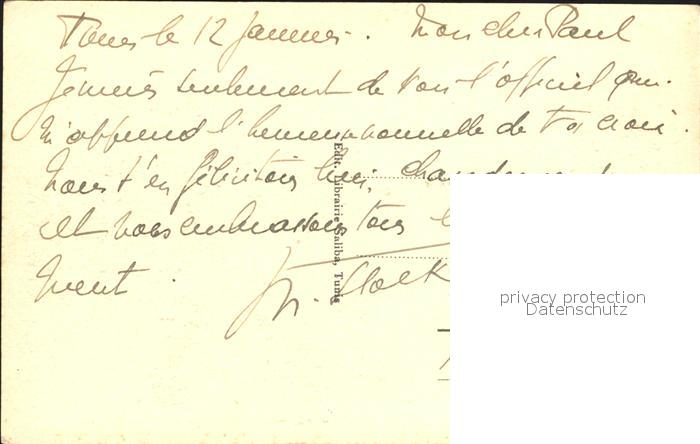 Tunis le 12 Janvier. Mon cher Paul
Je viens seulement de voir l'officiel qui
m'apprend l'heureuse nouvelle de ta croix.
Nous t'en félicitons bien
et vous embrassons tous
ment.
Edit. Librairie Saliba, Tunis
privacy protection
Datenschutz